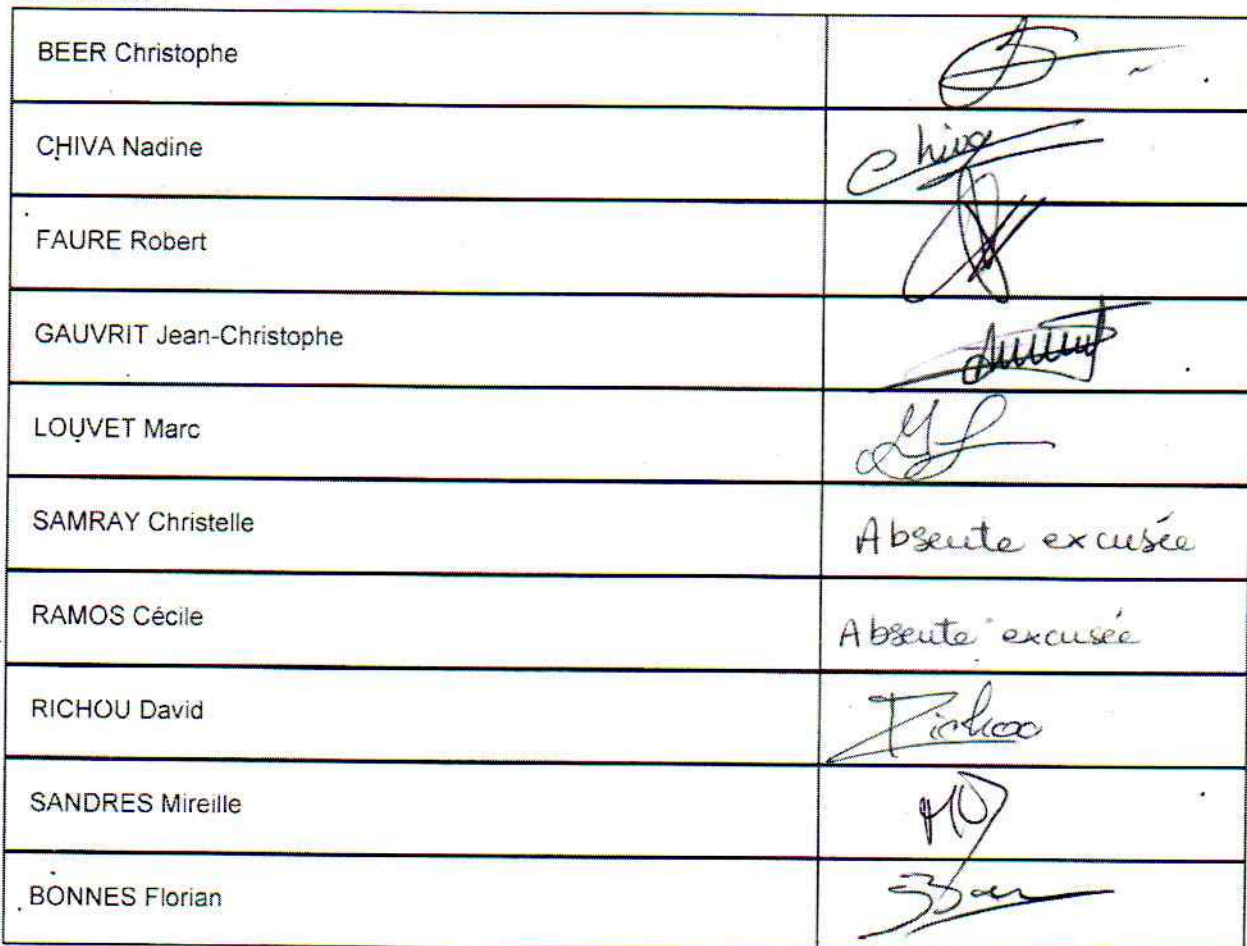 BEER Christophe
CHIVA Nadine
Chiva
FAURE Robert
GAUVRIT Jean-Christophe
LOUVET Marc
SAMRAY Christelle
Absente excusée
RAMOS Cécile
Absente excusée
RICHOU David
Richou
SANDRES Mireille
BONNES Florian